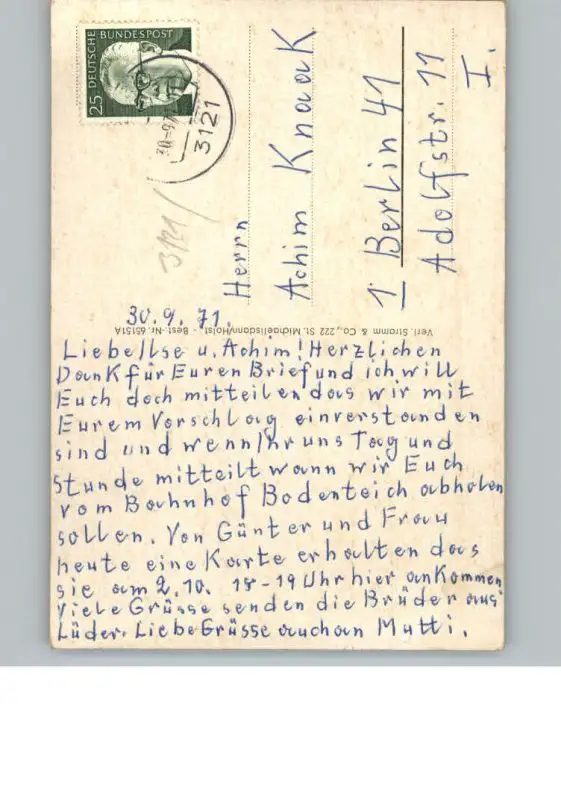 DEUTSCHE BUNDESPOST
25
30.-9.7
3121
3121/
Herrn
Achim Knaak
1 Berlin 41
Adolfstr. 11
I.
Verl. Stramm & Co., 222 St. Michaelisdonn/Holst. - Best.-Nr. 65151A
30.9.71.
Liebe Ilse u. Achim! Herzlichen
Dank für Euren Brief und ich will
Euch doch mitteilen das wir mit
Eurem Vorschlag einverstanden
sind und wenn Ihr uns Tag und
Stunde mitteilt wann wir Euch
vom Bahnhof Bodenteich abholen
sollen. Von Günter und Frau
heute eine Karte erhalten das
sie am 2.10. 18-19 Uhr hier ankommen
Viele Grüsse senden die Brüder aus
Lüder. Liebe Grüsse auch an Mutti.